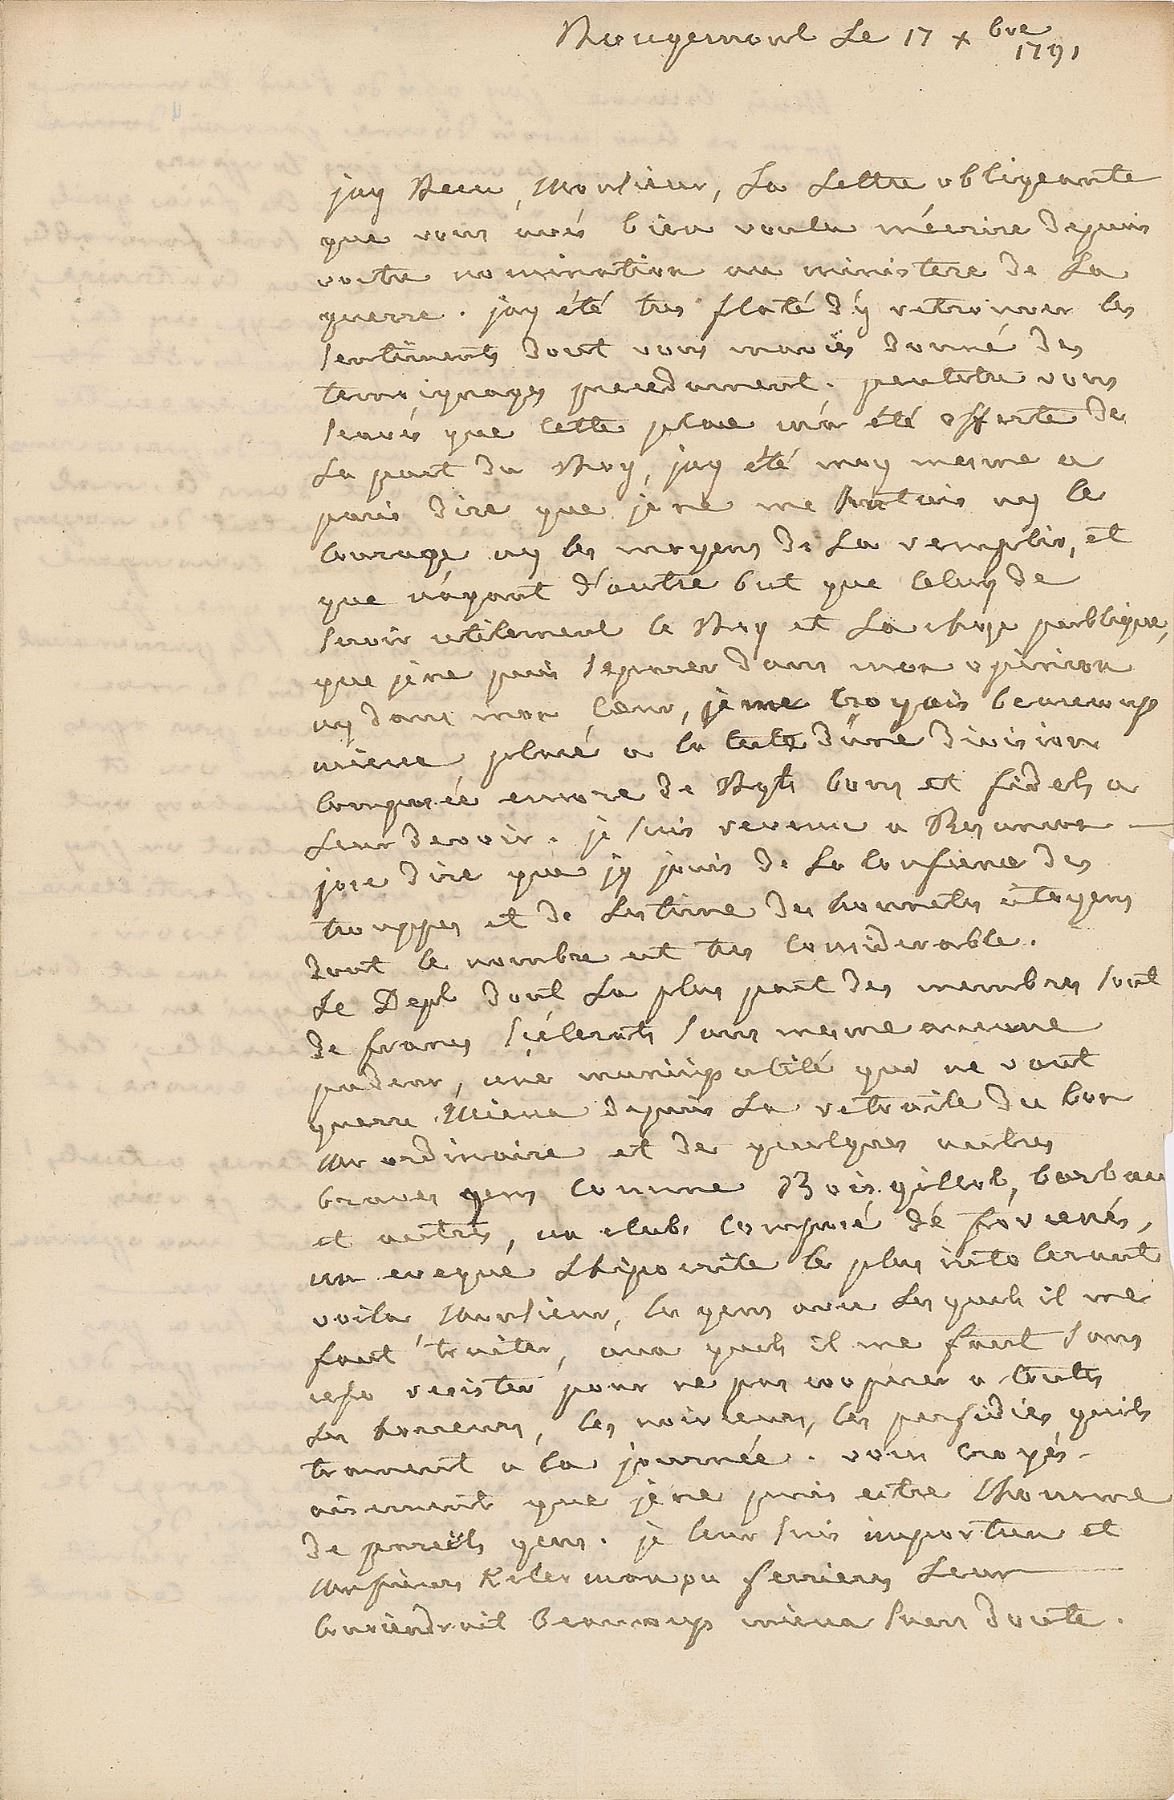 Rougemont Le 17 xbre
1791
jay Receu, Monsieur, La Lettre obligeante
que vous avés bien voulu m'écrire depuis
votre nomination au ministere de La
guerre. jay été tres flaté d'y retrouver les
sentiments dont vous m'aviés donné des
temoignages precedament. peutetre vous
scavés que cette place m'a été offerte de
La part du Roy, jay été moy mesme a
paris dire que je ne me sentois ny le
courage ny les moyens de La remplir, et
que n'ayant d'autre but que celuy de
servir utilement le Roy et La chose publique,
que je ne puis separer dans mon opinion
ny dans mon coeur, je me croyais beaucoup
mieux placé a la tete d'une division
composée encore de Rgts bons et fidels a
Leur devoir. je suis revenu a Besancon
jose dire que jy jouis de La confience des
trouppes et de Lestime des honnetes citoyens
dont le nombre est tres considerable.
Le Dept dont La plus part des membres sont
de francs scélerats sans mesme aucune
pudeur, une municipalité qui ne vaut
guere mieux depuis La retraite du bon
Mr ordinaire et de quelques autres
braves gens comme Boisgillot, barbau
et autres, un club composé de forcenés,
un eveque Lhipocrite le plus intolerant
voila Monsieur, les gens avec Lesquels il me
faut traiter, aux quels il me faut sans
cesse resister pour ne pas cooperer a toutes
Les horreurs, les noirceurs, les perfidies quils
trament a la journée. vous croyés
aisement que je ne puis estre Lhomme
de pareils gens. je leur suis importun et
Messieurs Kelerman ou ferrieres Leur
conviendroit beaucoup mieux sans doute.